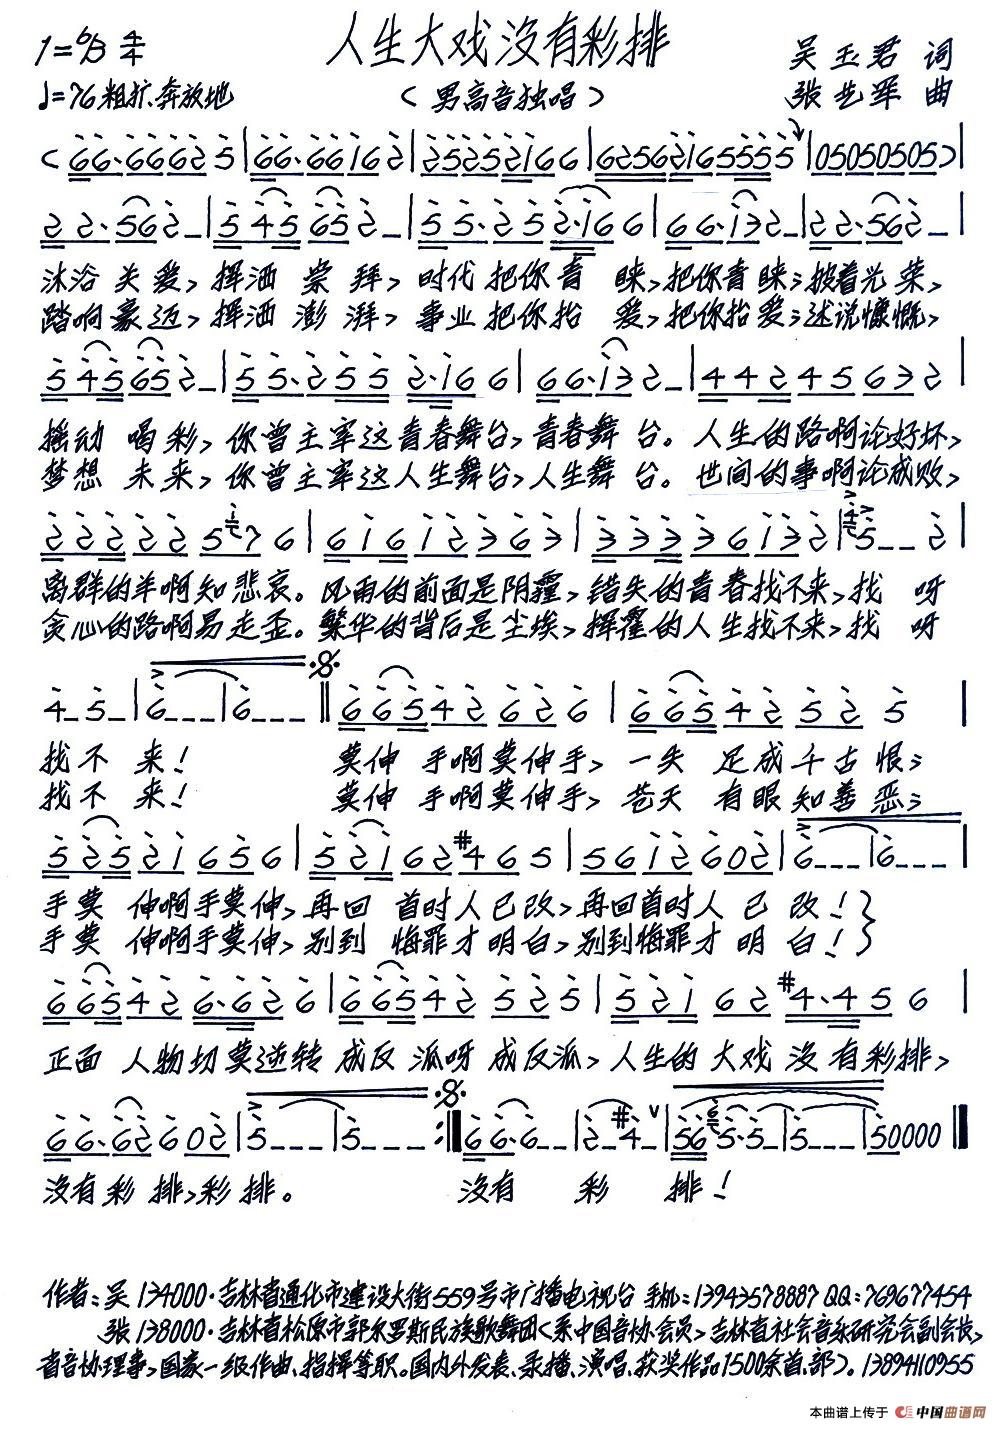 1=♭B 4/4
人生大戏没有彩排
吴玉君 词
♩=76 粗犷、奔放地
（男高音独唱）
张艺军 曲
沐浴关爱，挥洒崇拜，时代把你青睐，把你青睐；披着光荣，
踏响豪迈，挥洒澎湃，事业把你抬爱，把你抬爱；述说慷慨，
摇动喝彩，你曾主宰这青春舞台，青春舞台。人生的路啊论好坏，
梦想未来，你曾主宰这人生舞台，人生舞台。世间的事啊论成败，
离群的羊啊知悲哀。风雨的前面是阴霾，错失的青春找不来，找呀
贪心的路啊易走歪。繁华的背后是尘埃，挥霍的人生找不来，找呀
找不来！莫伸手啊莫伸手，一失足成千古恨；
找不来！莫伸手啊莫伸手，苍天有眼知善恶；
手莫伸啊手莫伸，再回首时人已改，再回首时人已改！
手莫伸啊手莫伸，别到悔罪才明白，别到悔罪才明白！
正面人物切莫逆转成反派呀成反派，人生的大戏没有彩排，
没有彩排，彩排。没有彩排！
作者：吴 134000·吉林省通化市建设大街559号市广播电视台 手机：13943578887 QQ：769677454
张 138000·吉林省松原市郭尔罗斯民族歌舞团（系中国音协会员，吉林省社会音乐研究会副会长，
省音协理事，国家一级作曲、指挥等职。国内外发表、录播、演唱、获奖作品1500余首、部）。13894110955
本曲谱上传于 中国曲谱网